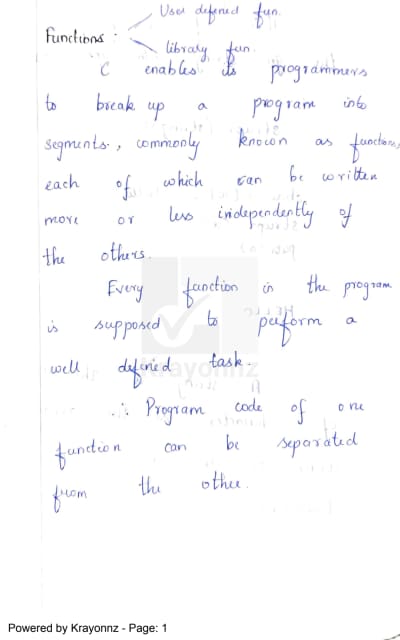 User defined fun.
Functions :
library fun.
C enables its programmers
to break up a program into
segments, commonly known as functions,
each of which can be written
more or less independently of
the others.
Every function in the program
is supposed to perform a
well defined task.
∴ Program code of one
function can be separated
from the other.
Krayonnz
Powered by Krayonnz - Page: 1